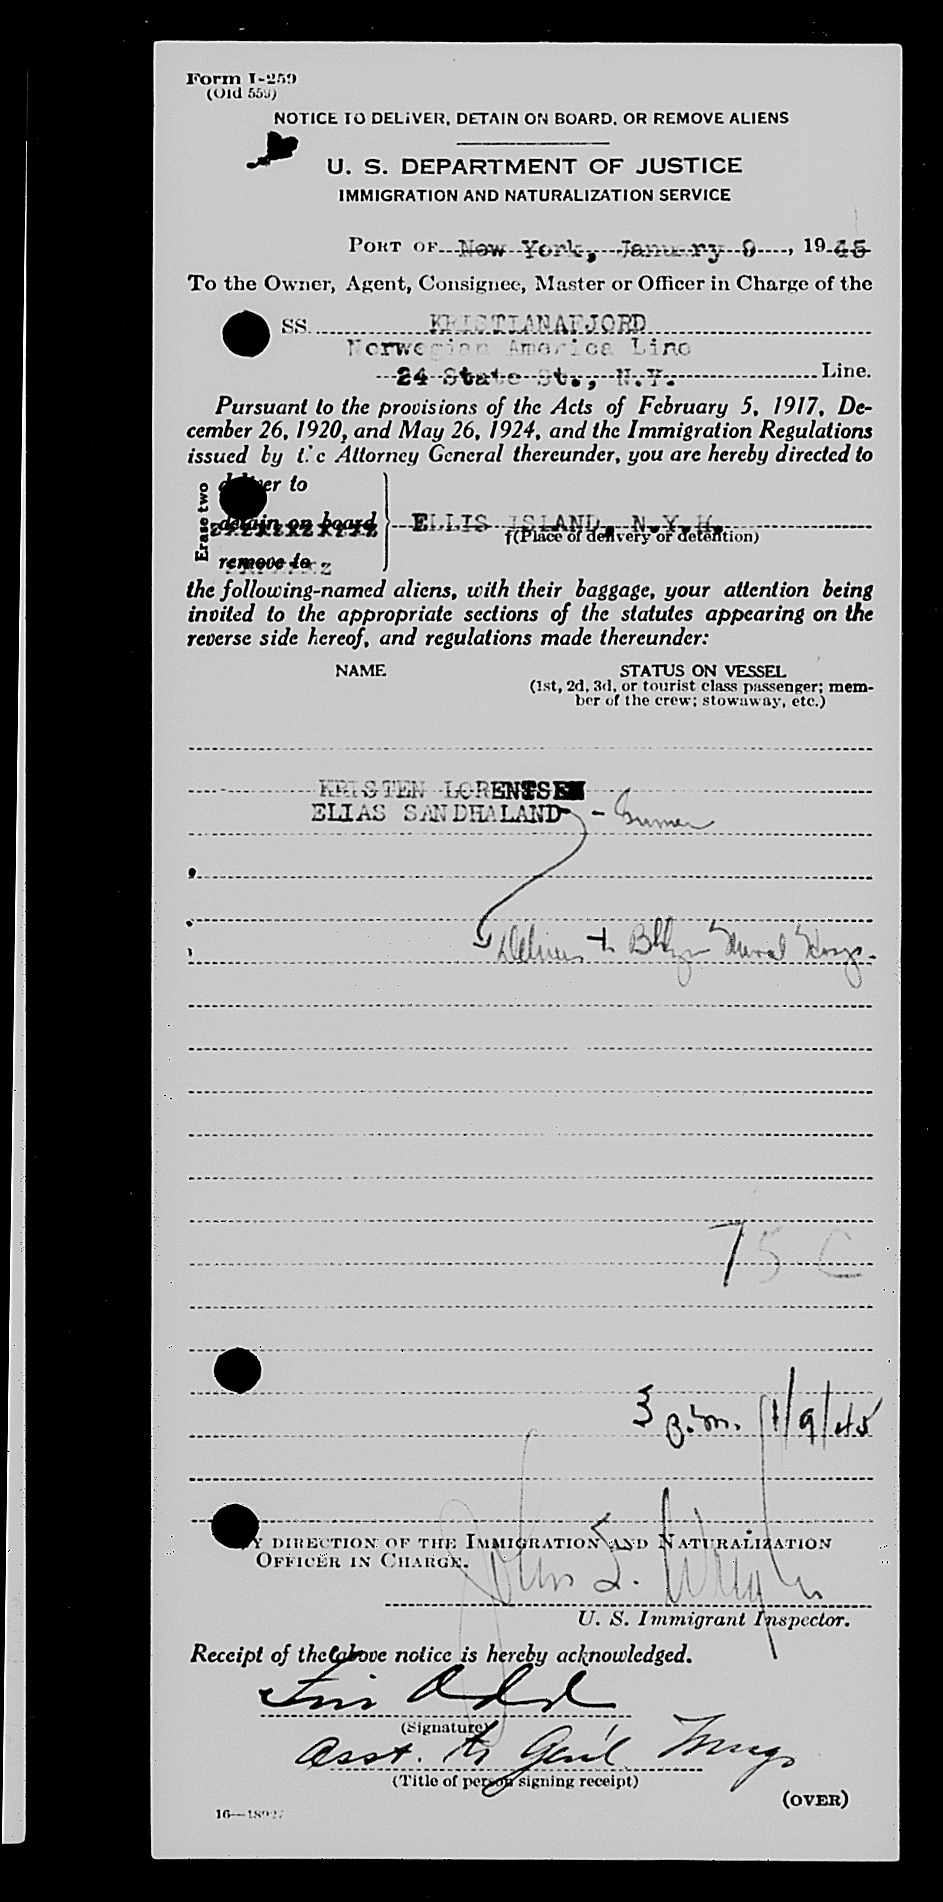 Form I-259
(Old 559)
NOTICE TO DELIVER, DETAIN ON BOARD, OR REMOVE ALIENS
U. S. DEPARTMENT OF JUSTICE
IMMIGRATION AND NATURALIZATION SERVICE
PORT OF New York, January 9, 1945
To the Owner, Agent, Consignee, Master or Officer in Charge of the
SS. KRISTIANAFJORD
Norwegian America Line
24 State St., N.Y. Line.
Pursuant to the provisions of the Acts of February 5, 1917, De-
cember 26, 1920, and May 26, 1924, and the Immigration Regulations
issued by the Attorney General thereunder, you are hereby directed to
Erase two
deliver to
detain on board
remove to
ELLIS ISLAND, N.Y.H.
†(Place of delivery or detention)
the following-named aliens, with their baggage, your attention being
invited to the appropriate sections of the statutes appearing on the
reverse side hereof, and regulations made thereunder:
NAME STATUS ON VESSEL
(1st, 2d, 3d, or tourist class passenger; mem-
ber of the crew; stowaway, etc.)
KRISTEN LORENTSEN
ELIAS SANDHALAND -
Deliver to Bklyn Naval Hosp.
75 C
3 p.m. 1/9/45
BY DIRECTION OF THE IMMIGRATION AND NATURALIZATION
OFFICER IN CHARGE.
John
U. S. Immigrant Inspector.
Receipt of the above notice is hereby acknowledged.
(Signature)
Asst. to Gen'l
(Title of person signing receipt)
(OVER)
16—18927